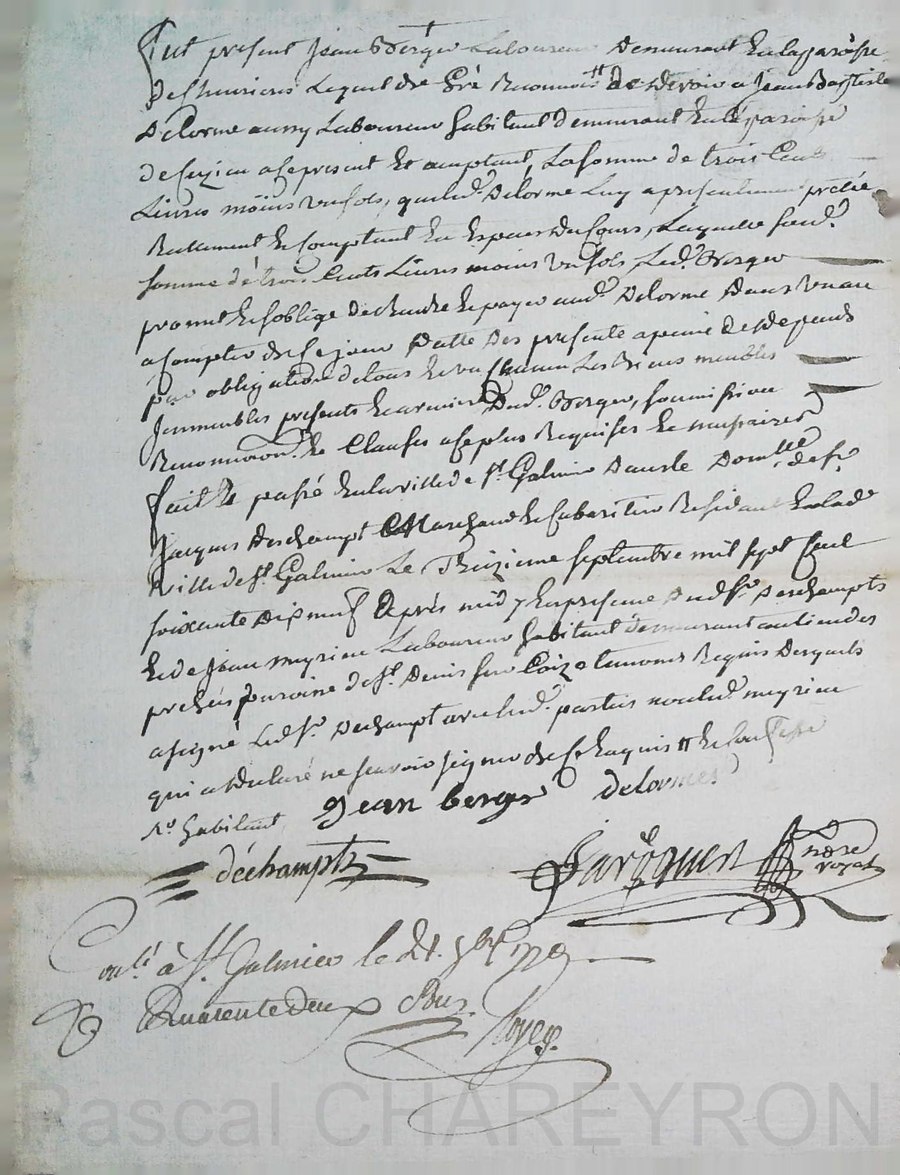 Fut present Jean Berger Laboureur demeurant En la paroisse
de Lequel de Gré Reconnoit de devoir a Jean Baptiste
Delorme aussy Laboureur habitant demeurant En la paroisse
de Cuzieu a ce present Et acceptant, La somme de trois Cents
Livres moins un sols, que led. Delorme Luy a presentement pretée
Reellement et Comptant En Especes du Cours, Laquelle susd.
somme de trois Cents Livres moins un sols, Led. Berger
promet et s'oblige de Rendre et payer aud. Delorme dans un an
a Compter de Ce jour datte des presente a peine de tous depends
par obligation de tous et un Chacun Les Biens meubles
Immeubles presents et avenir dud. Berger, soumission
Renonciaon. et Clauses a ce plus Requises et necessaires
fait et passé En la ville de St. Galmier dans le Domlle. de sr.
Jacques deschampt Marchand et Cabaretier Residant En lad.
ville de St. Galmier Le Treizieme septembre mil sept Cent
soixante dix neuf après midy En presence dud. sr. Deschampts
Et de Jean meyrieu Laboureur habitant demeurant au lieu des
paroisse de St. Denis sur Coize temoins Requis Desquels
a signé Led. sr. Dechampt avec lesd. parties non led. meyrieu
qui a declaré ne scavoir signer de ce Enquis
habitant Jean berger delormes
déchampts
nore
royal
Conlé à St. Galmier le 21. 7bre 1779
R Quarente deux Sous.